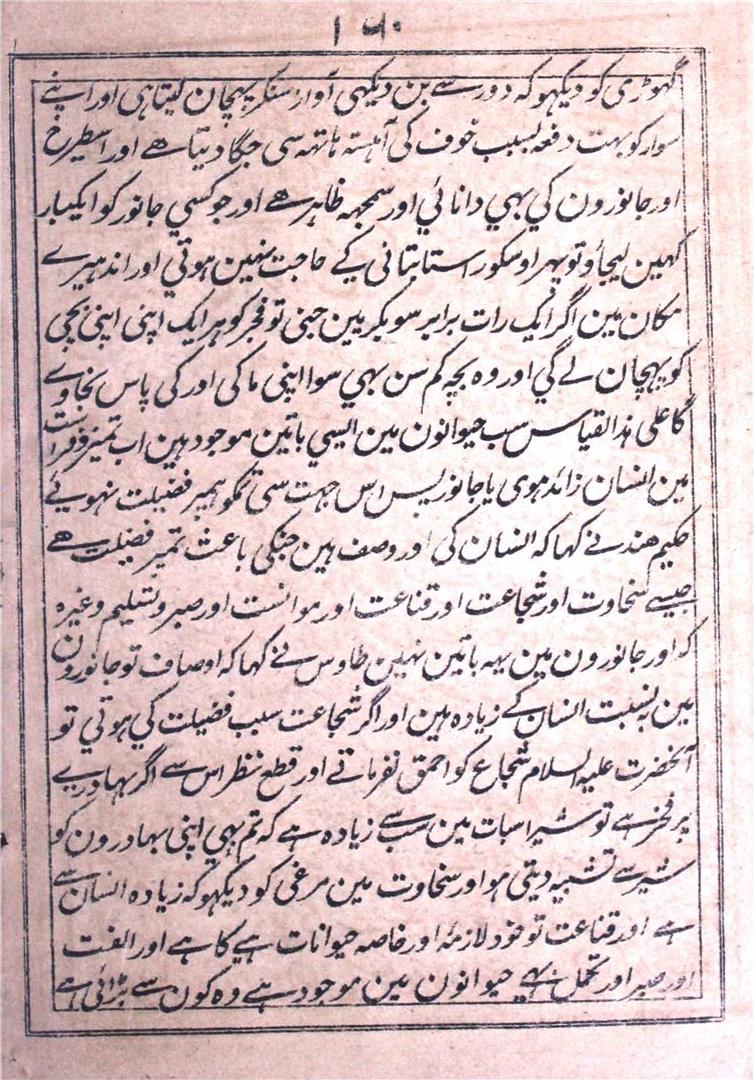 ۱۶۰
گهوڑی کو دیکہو کہ دور سے بن دیکہی آواز سنکر پہچان لیتا ہی اور اپنے
سوار کو بہت دفعہ بسبب خوف کی آہستہ ہاتہہ سی جگا دیتا ہے اور اسطرح
اور جانورون کی بہی دانائی اور سمجہہ ظاہر ہے اور جو کسی جانور کو ایکبار
کہین لیجاؤ تو پہر اوسکو راستا بتانی کے حاجت نہین ہوتی اور اندہیرے
مکان مین اگر ایک رات برابر سو بکرین جنی تو فجر کو ہر ایک اپنی اپنی بچی
کو پہچان لے گی اور وہ بچہ کم سن بہی سوا اپنی ما کی اور کی پاس نجاوے
گا علی ہذا القیاس سب حیوانون مین ایسی باتین موجود ہین اب تمیز و فراست
مین انسان زائد ہوی یا جانور پس اس جہت سی تمکو ہمپر فضیلت نہوئے
حکیم ہند نے کہا کہ انسان کی اور وصف ہین جنکی باعث تمپر فضیلت ہے
جیسے سخاوت اور شجاعت اور قناعت اور موانست اور صبر و تسلیم وغیرہ
کہ اور جانورون مین یہہ باتین نہین طاوس نے کہا کہ اوصاف تو جانورون
مین بہ نسبت انسان کے زیادہ ہین اور اگر شجاعت سبب فضیلت کی ہوتی تو
آنحضرت علیہ السلام شجاع کو احمق نفرماتے اور قطع نظر اس سے اگر بہادریے
پر فخر ہے تو شیر اسبات مین سب سے زیادہ ہے کہ تم بہی اپنی بہادرون کو
شیر سے تشبیہ دیتی ہو اور سخاوت مین مرغی کو دیکہو کہ زیادہ انسان سے
ہے اور قناعت تو خود لازمۂ اور خاصہ حیوانات ہیے کا ہے اور الفت
اور صبر اور تحمل بہیے حیوانون مین موجود ہے وہ کون سے بڑائی ہے